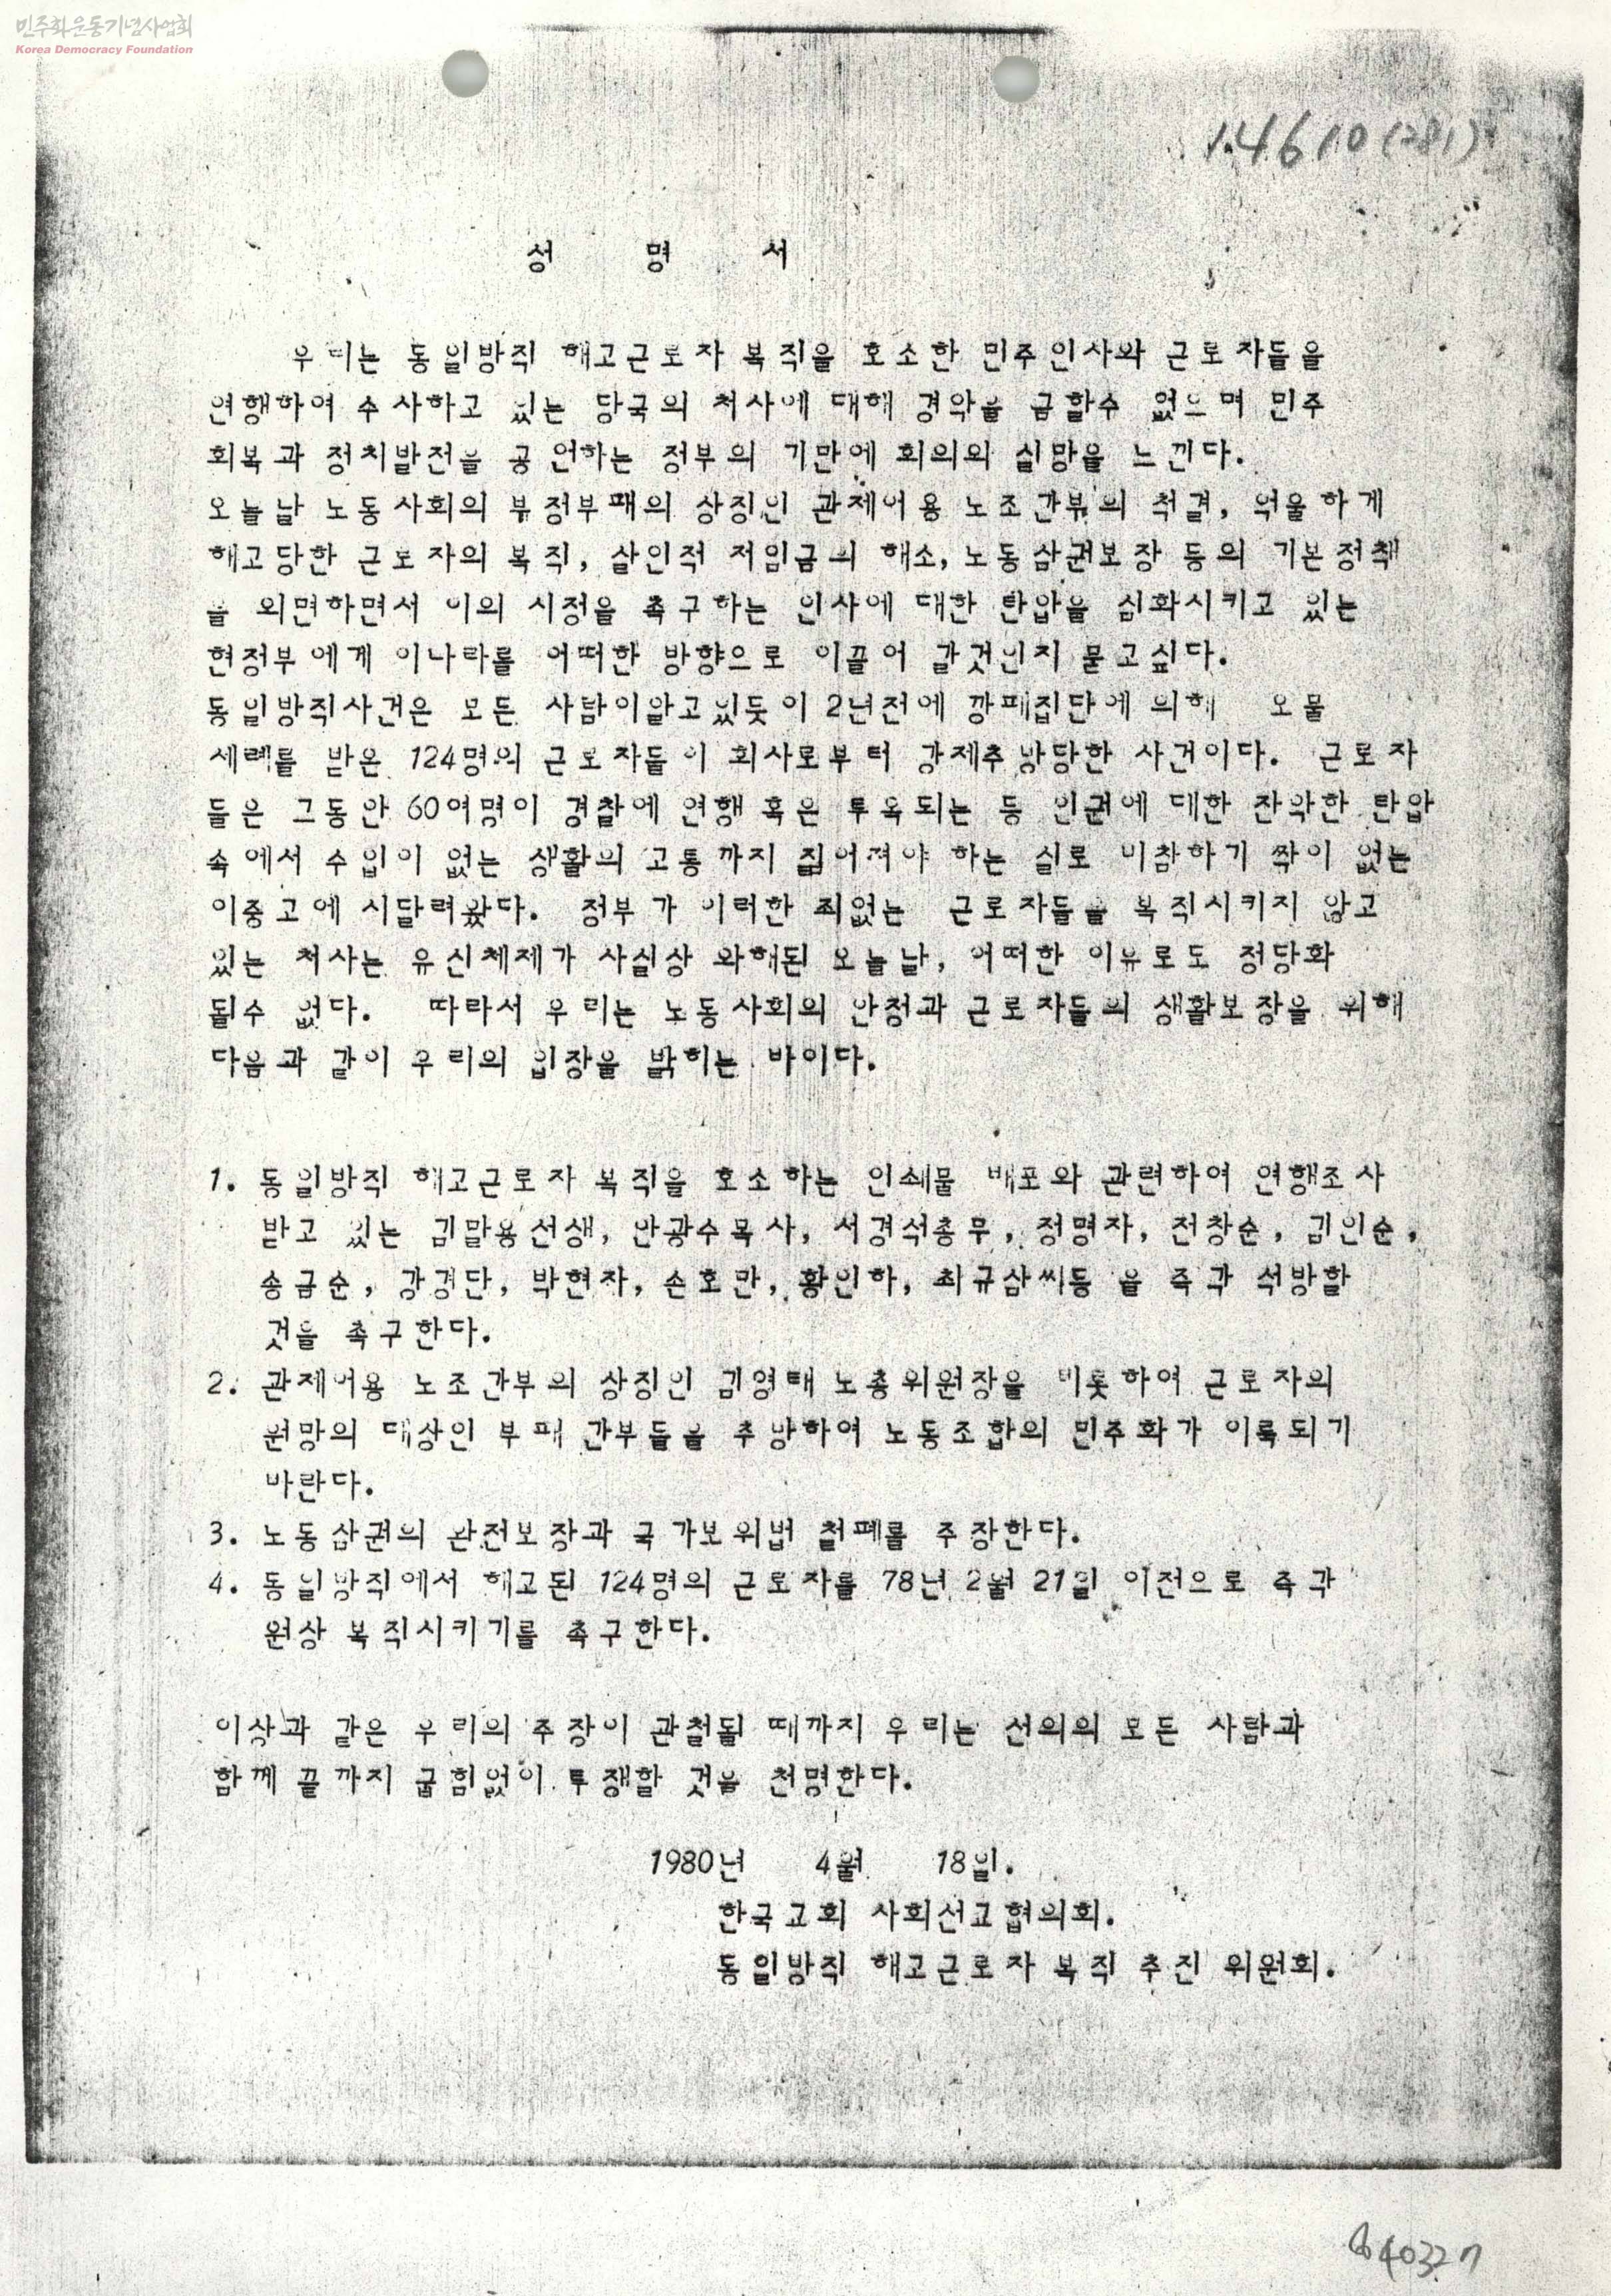 민주화운동기념사업회
Korea Democracy Foundation
성 명 서
우리는 동일방직 해고근로자 복직을 호소한 민주인사와 근로자들을
연행하여 수사하고 있는 당국의 처사에 대해 경악을 금할수 없으며 민주
회복과 정치발전을 공언하는 정부의 기만에 회의와 실망을 느낀다.
오늘날 노동사회의 부정부패의 상징인 관제어용 노조간부의 척결, 억울하게
해고당한 근로자의 복직, 살인적 저임금의 해소, 노동삼권보장 등의 기본정책
을 외면하면서 이의 시정을 촉구하는 인사에 대한 탄압을 심화시키고 있는
현정부에게 이나라를 어떠한 방향으로 이끌어 갈것인지 묻고싶다.
동일방직사건은 모든 사람이알고있듯이 2년전에 깡패집단에 의해 오물
세례를 받은 124명의 근로자들이 회사로부터 강제추방당한 사건이다. 근로자
들은 그동안 60여명이 경찰에 연행 혹은 투옥되는 등 인권에 대한 잔악한 탄압
속에서 수입이 없는 생활의 고통까지 짊어져야 하는 실로 비참하기 짝이 없는
이중고에 시달려왔다. 정부가 이러한 죄없는 근로자들을 복직시키지 않고
있는 처사는 유신체제가 사실상 와해된 오늘날, 어떠한 이유로도 정당화
될수 없다. 따라서 우리는 노동사회의 안정과 근로자들의 생활보장을 위해
다음과 같이 우리의 입장을 밝히는 바이다.
1. 동일방직 해고근로자 복직을 호소하는 인쇄물 배포와 관련하여 연행조사
받고 있는 김말용선생, 안광수목사, 서경석총무, 정명자, 전창순, 김인순,
송금순, 강경단, 박현자, 손호만, 황인하, 최규삼씨등 을 즉각 석방할
것을 촉구한다.
2. 관제어용 노조간부의 상징인 김영태 노총위원장을 비롯하여 근로자의
원망의 대상인 부패 간부들을 추방하여 노동조합의 민주화가 이룩되기
바란다.
3. 노동삼권의 완전보장과 국가보위법 철폐를 주장한다.
4. 동일방직에서 해고된 124명의 근로자를 78년 2월 21일 이전으로 즉각
원상 복직시키기를 촉구한다.
이상과 같은 우리의 주장이 관철될 때까지 우리는 선의의 모든 사람과
함께 끝까지 굽힘없이 투쟁할 것을 천명한다.
1980년 4월 18일.
한국교회 사회선교협의회.
동일방직 해고근로자 복직 추진 위원회.